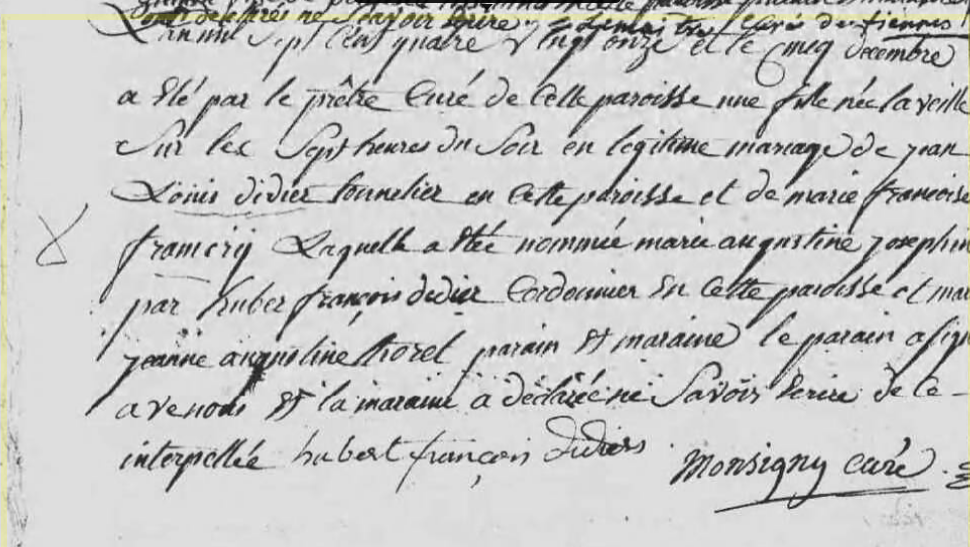 de lettres ne scavoir ecrire
L'an mil sept cent quatre vingt onze et le cinq decembre
a été par le prêtre curé de cette paroisse une fille née la veille
sur les sept heures du soir en legitime mariage de jean
Louis didier tonnelier en cette paroisse et de marie francoise
framery Laquelle a étée nommée marie augustine josephin
par huber françois didier cordonnier en cette paroisse et mar
jeanne augustine thorel parain et maraine le parain a sign
avenous et la maraine a déclarée ne savoir ecrire de ce
interpellée hubert françois didier
Monsigny curé